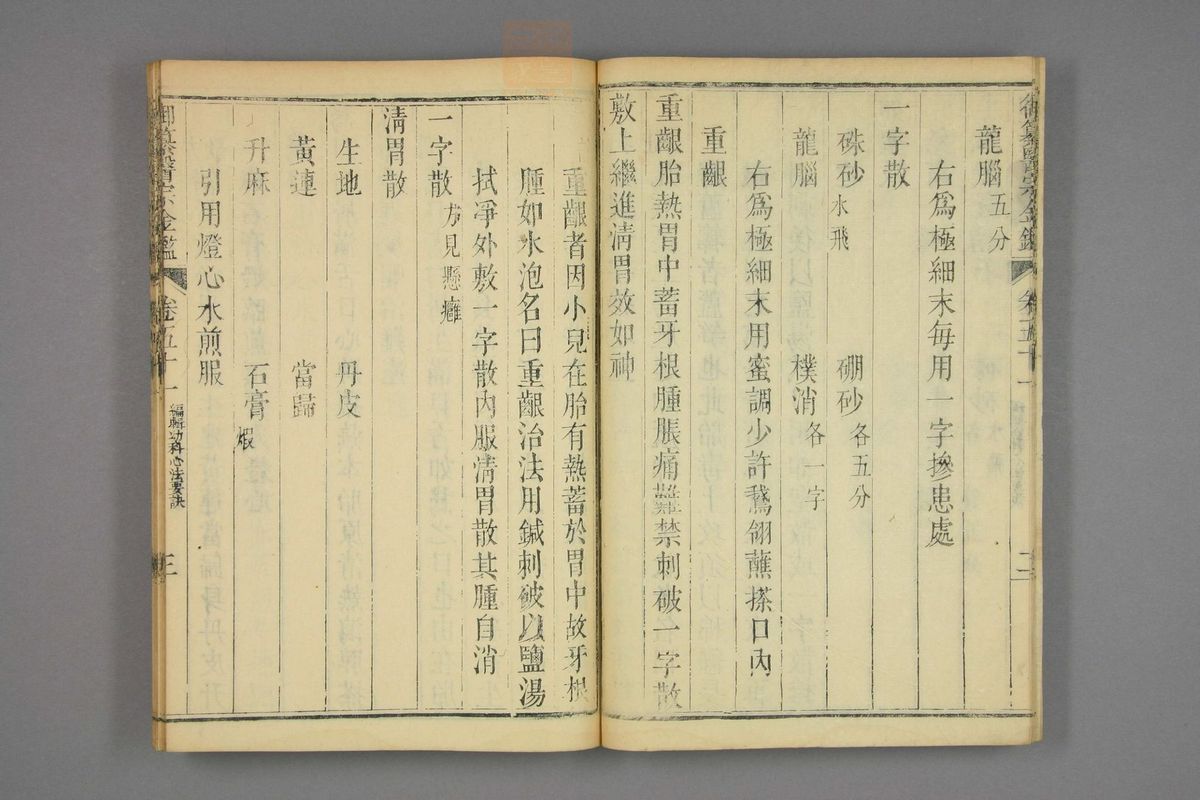 龍腦五分
右爲極細末每用一字摻患處
一字散
硃砂水飛 硼砂各五分
龍腦 樸消各一字
右爲極細末用蜜調少許鵞翎蘸搽口內
重齦
重齦胎熱胃中蓄牙根腫脹痛難禁刺破一字散
敷上繼進清胃效如神
重齦者因小兒在胎有熱蓄於胃中故牙根
腫如水泡名曰重齦治法用鍼刺破以鹽湯
拭淨外敷一字散內服清胃散其腫自消
一字散方見懸癰
清胃散
生地 丹皮
黃連 當歸
升麻 石膏煆
引用燈心水煎服
御纂醫宗金鑑 卷五十一 編輯幼科心法要訣 三